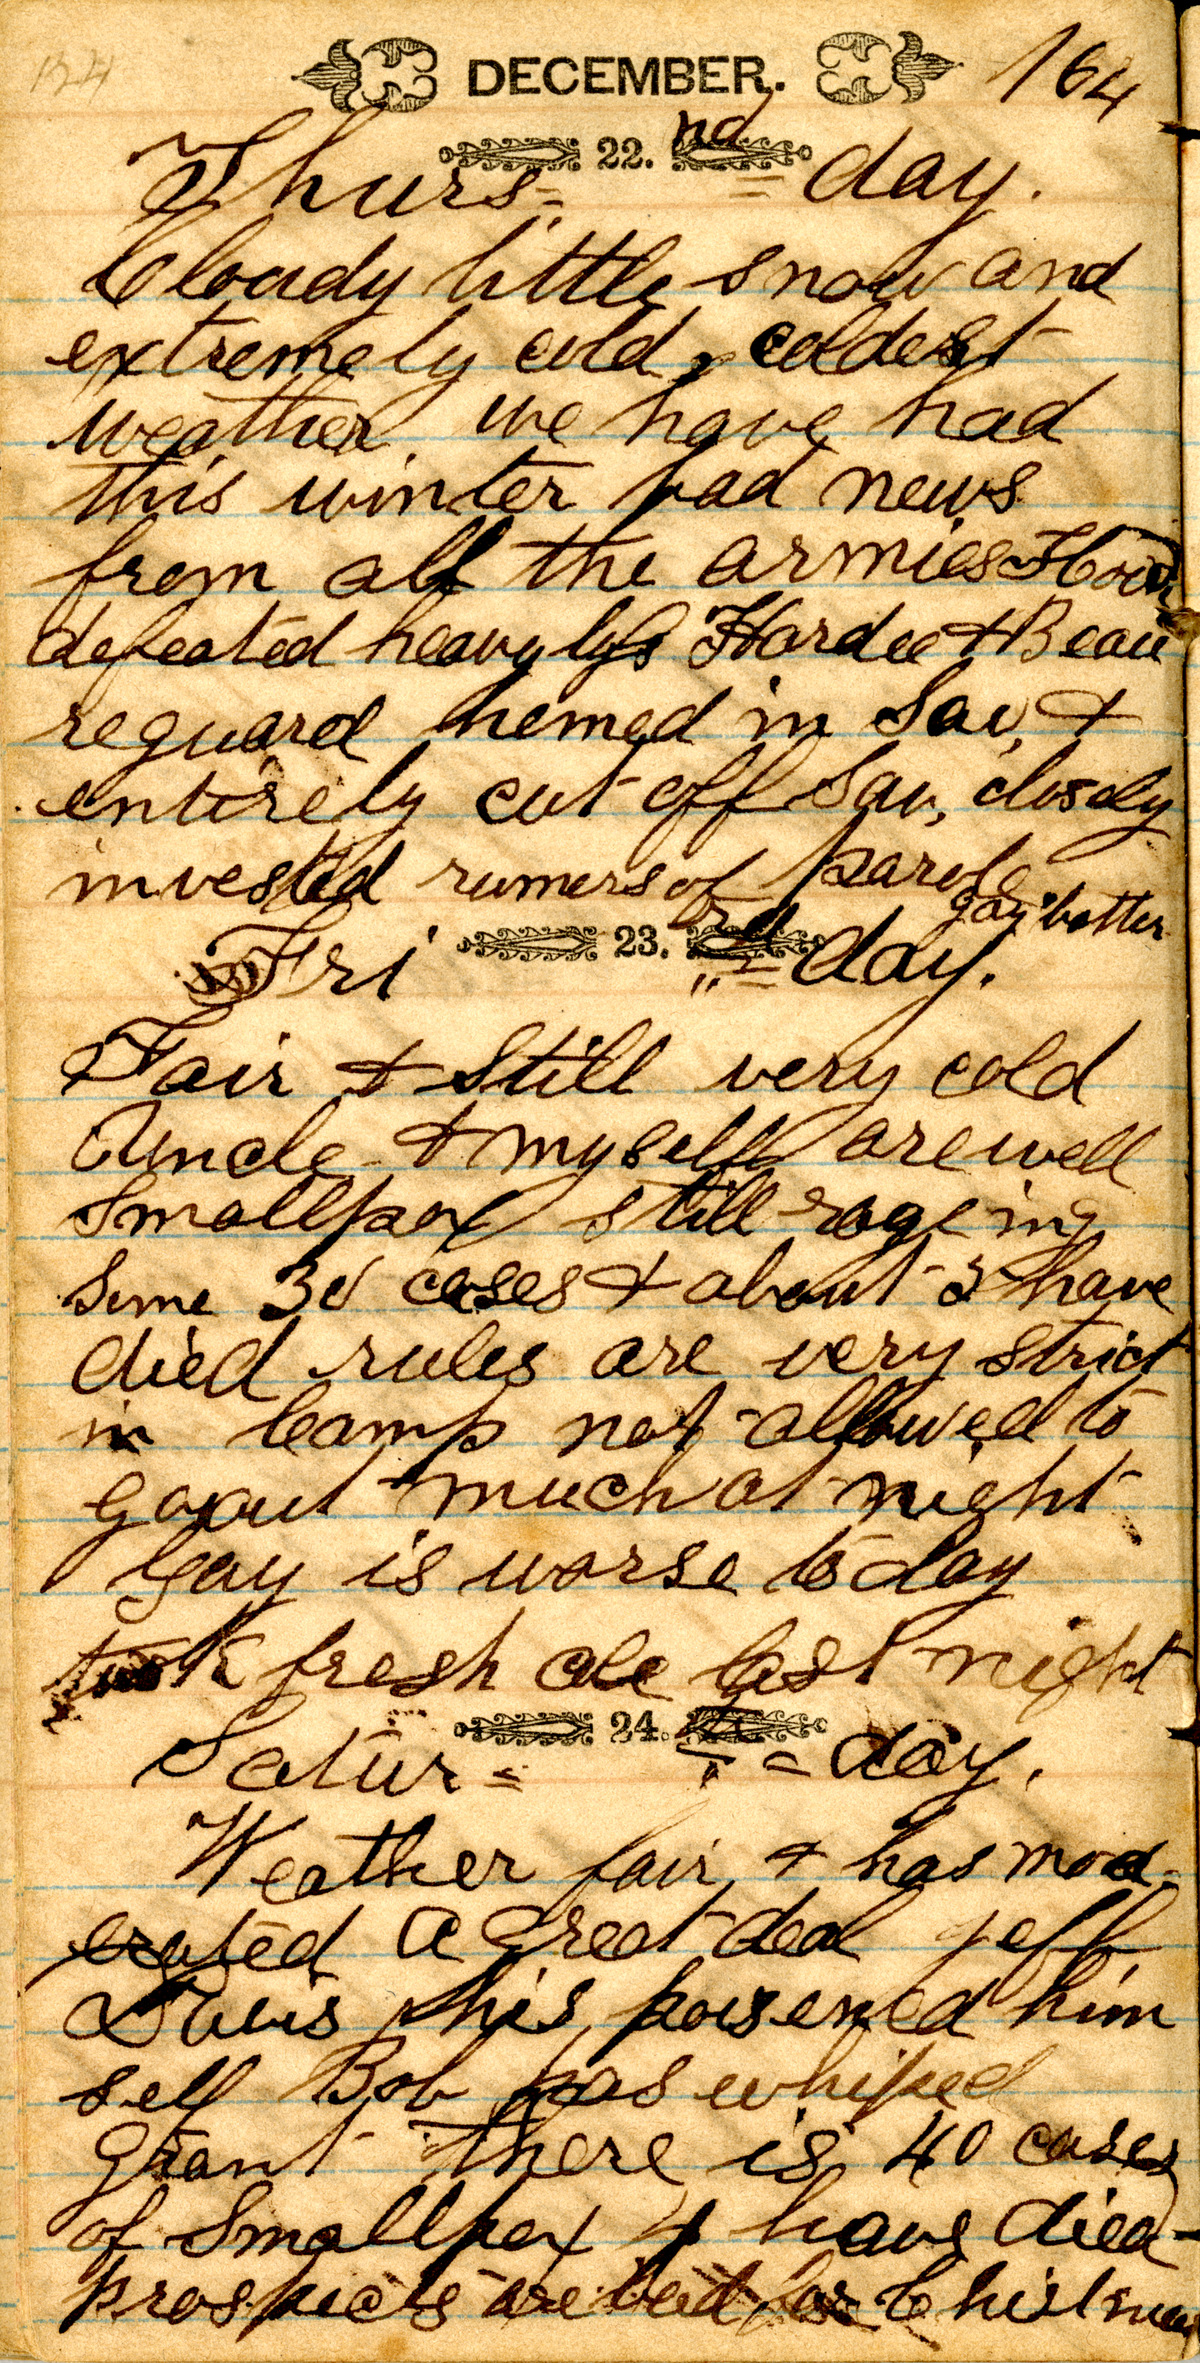 124
DECEMBER. 164
Thurs- 22. nd = day.
Cloudy little snow and
extremely cold, coldest
weather we have had
this winter bad news
from all the armies Hood
defeated heavyly Hardee & Beau
reguard hemed in Sav, &
entirely cut off Sav, closely
invested rumers of parole
Gay better
Fri 23. rd = day.
Fair & Still very cold
Uncle & myself are well
Smallpox still rageing
Some 30 cases & about 3 have
died rules are very strict
in Camp not allowed to
go out much at night
Gay is worse to day
took fresh cole last night
Satur= 24. th = day.
Weather fair & has mod-
erated a Great deal Jeff,
Davis his poisened him
self Bob has whiped
Grant there is 40 cases
of Smallpox 4 have died-
Prospects are bad for Christmas